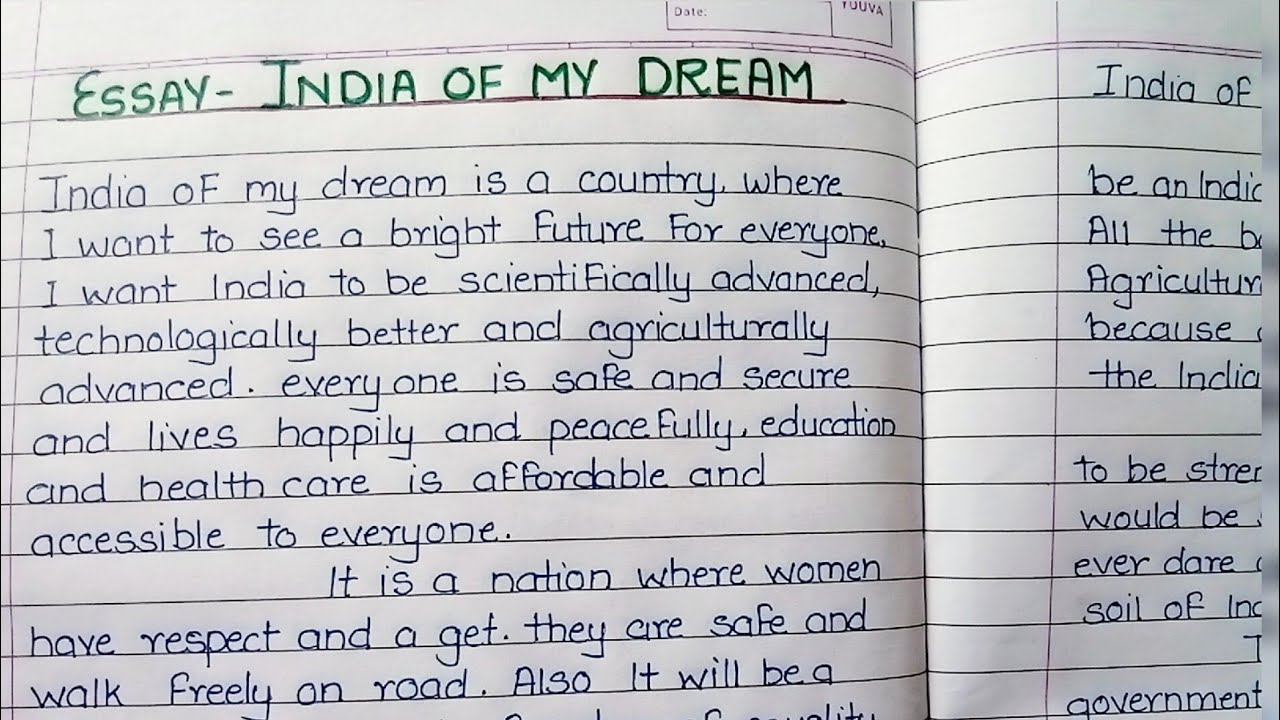 Date:
YOUVA
ESSAY- INDIA OF MY DREAM
India of my dream is a country, where
I want to see a bright future for everyone.
I want India to be scientifically advanced,
technologically better and agriculturally
advanced. everyone is safe and secure
and lives happily and peacefully, education
and health care is affordable and
accessible to everyone.
It is a nation where women
have respect and a get. they are safe and
walk freely on road. Also It will be a
equality
India of
be an
All the
because
the
to be
would be
ever dare
soil of
government